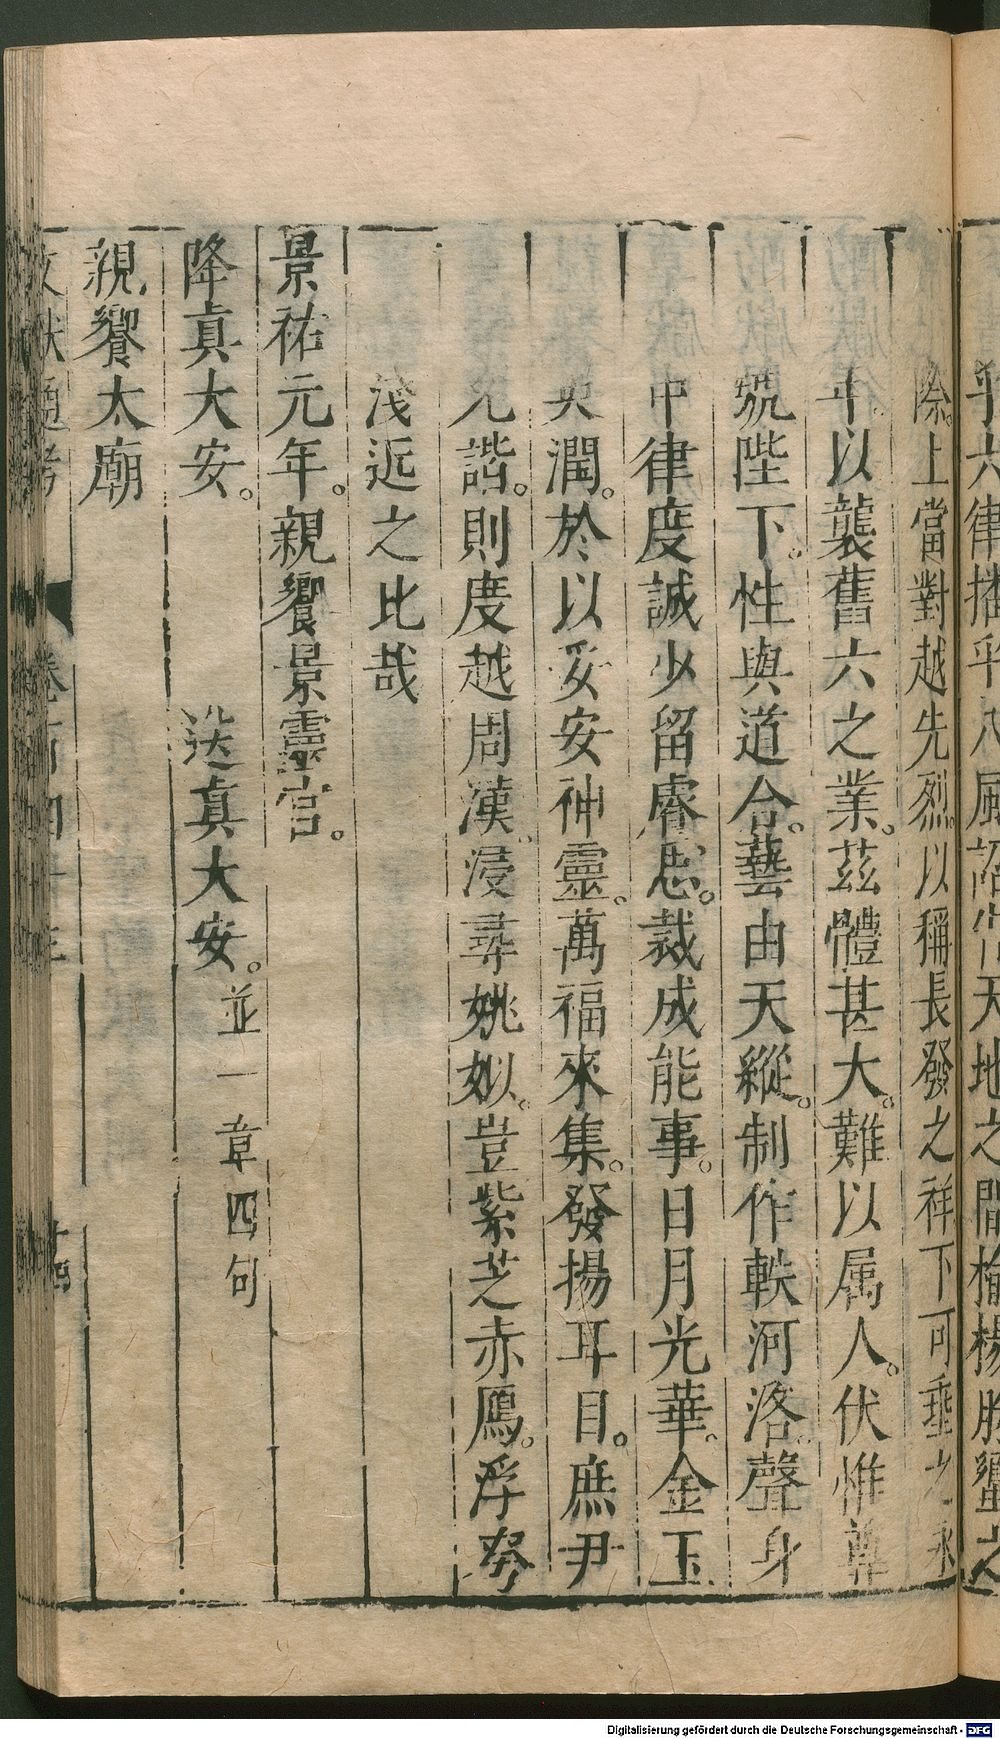 乎六律播乎八風諂常天地之間揄揚肸蠁之
際。上當對越先烈。以稱長發之祥下可垂之永
年。以襲舊六之業。茲體甚大。難以属人。伏惟尊
號陛下。性與道合。藝由天縱。制作軼河洛。聲身
中律度誠少留睿思。裁成能事。日月光華。金玉
英潤。於以妥安神靈。萬福來集。發揚耳目。庶尹
允諧。則度越周漢。浸尋姚姒。豈紫芝赤鴈。浮㛄
淺近之比哉
景祐元年。親饗景靈宮。
降真大安。 送真大安。並一章四句
親饗太廟
文獻通考 卷百四十三 十四
Digitalisierung gefördert durch die Deutsche Forschungsgemeinschaft - DFG